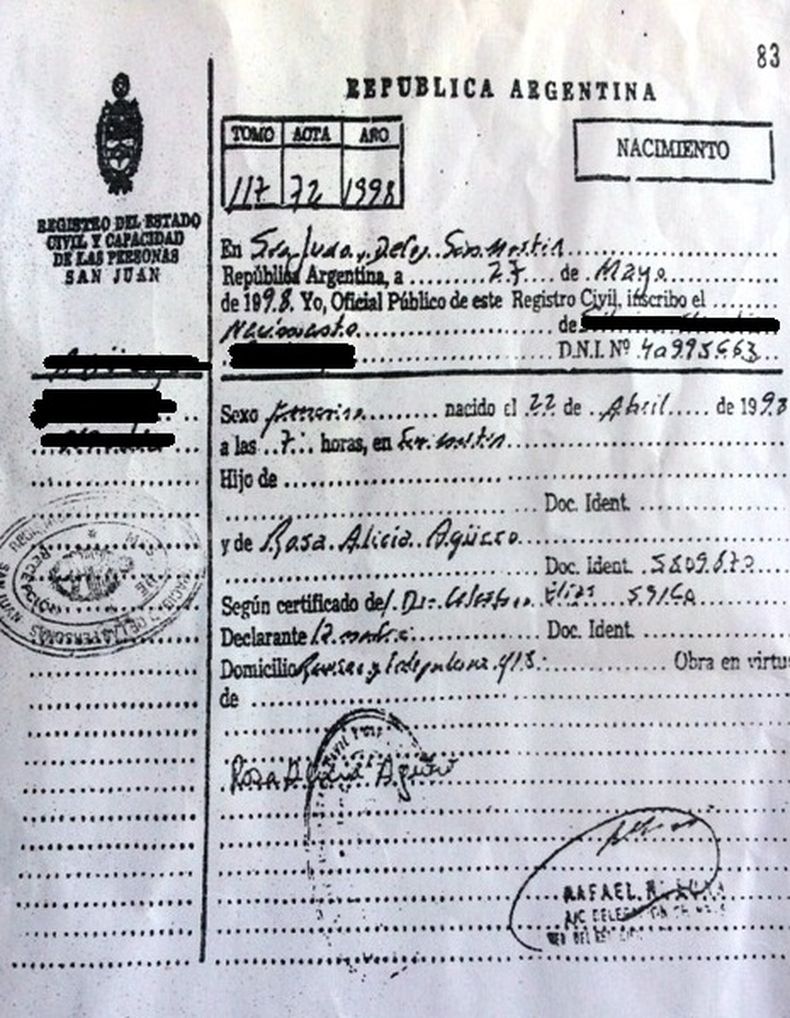 83
REPUBLICA ARGENTINA
TOMO ACTA AÑO
117 72 1998
NACIMIENTO
REGISTRO DEL ESTADO
CIVIL Y CAPACIDAD
DE LAS PERSONAS
SAN JUAN
En San Martin
República Argentina, a 27 de Mayo
de 1998. Yo, Oficial Público de este Registro Civil, inscribo el
Nacimiento de
D.N.I. Nº 40995663
Sexo femenino nacido el 22 de Abril de 1998
a las 7 horas, en San Martin
Hijo de
Doc. Ident.
y de Rosa Alicia Agüero
Doc. Ident.
Según certificado de
Declarante la madre Doc. Ident.
Domicilio Obra en virtu
de
Rosa Alicia Agüero
RAFAEL